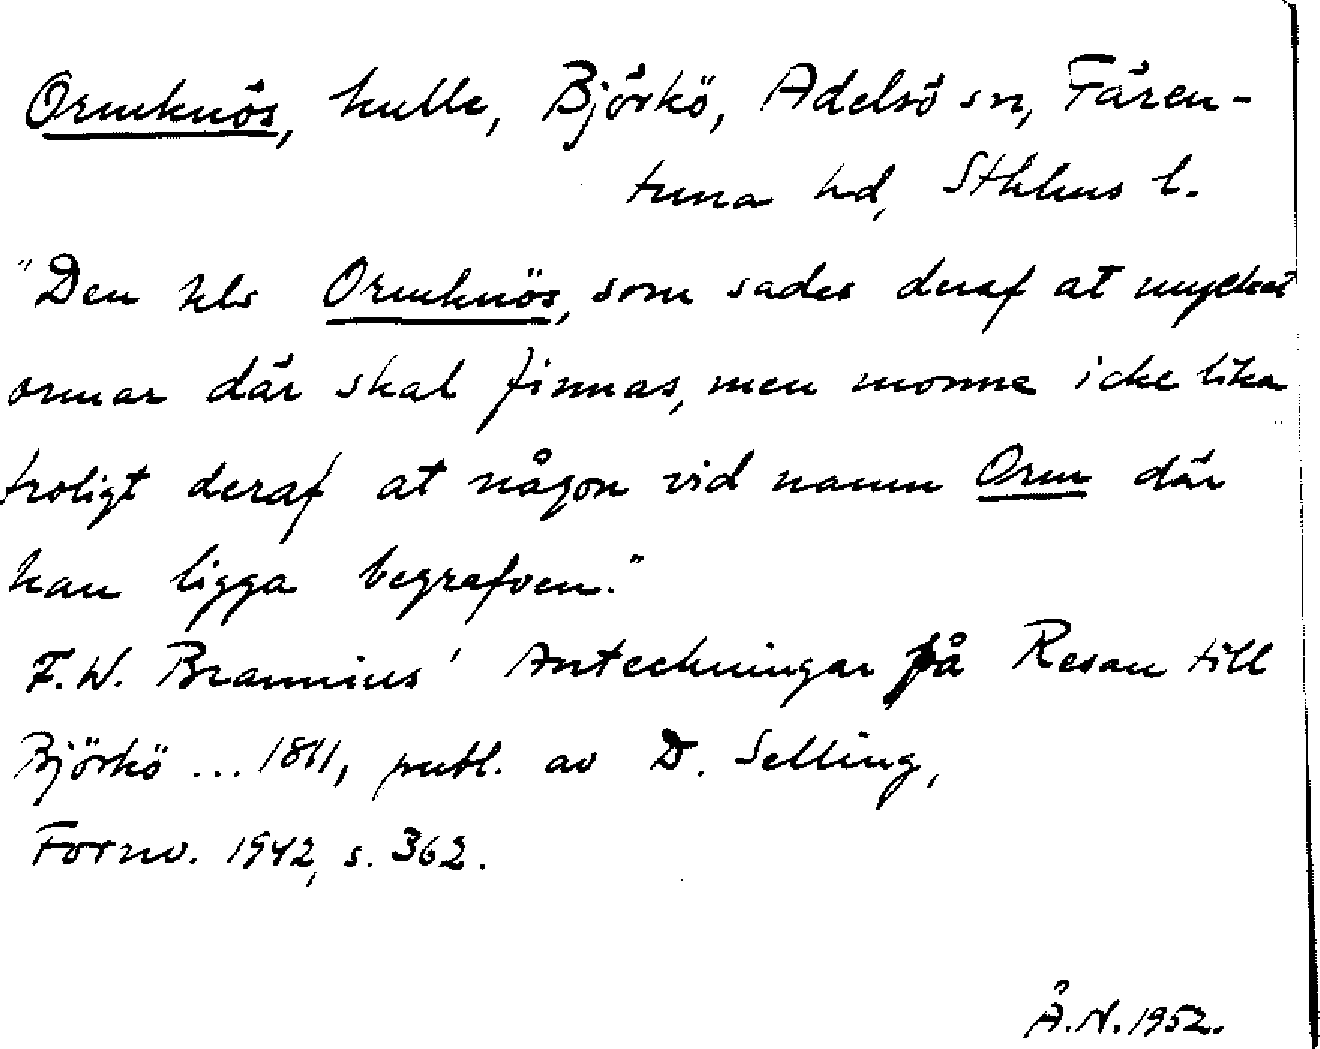 Ormknös, kulle, Björkö, Adelsö sn, Fären-
tuna hd, Sthlms l.
"Den kls Ormknös, som sades deraf at mycket
ormar där skal finnas, men monne icke lika
troligt deraf at någon vid namn Orm där
kan ligga begrafven."
F.W. Brannius' Anteckningar på Resan till
Björkö ... 1811, publ. av D. Selling,
Fornv. 1942, s. 362.
Å.N. 1952.